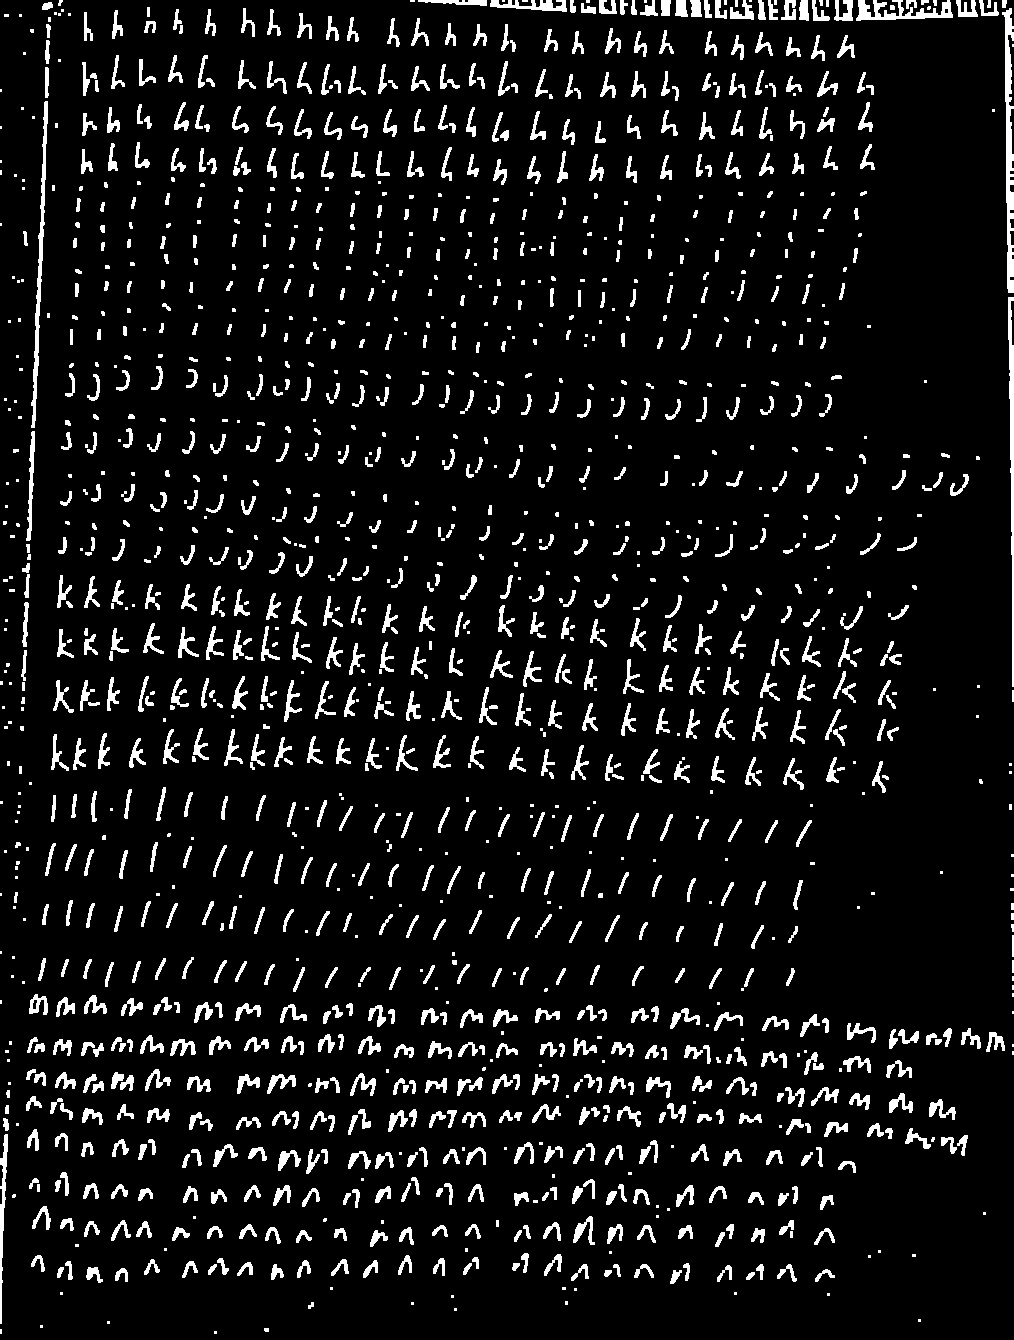 h h h h h h h h h h h h h h h h h h h h h h h h h h
h h h h h h h h h h h h h h h h h h h h h h h h h h
h h h h h h h h h h h h h h h h h h h h h h h h h h
h h h h h h h h h h h h h h h h h h h h h h h h h h
i i i i i i i i i i i i i i i i i i i i i i i i i i
i i i i i i i i i i i i i i i i i i i i i i i i i i
i i i i i i i i i i i i i i i i i i i i i i i i i i
i i i i i i i i i i i i i i i i i i i i i i i i i i
j j j j j j j j j j j j j j j j j j j j j j j j j j j
j j j j j j j j j j j j j j j j j j j j j j j j j j j
j j j j j j j j j j j j j j j j j j j j j j j j j j
j j j j j j j j j j j j j j j j j j j j j j j j j j
k k k k k k k k k k k k k k k k k k k k k k k k k k
k k k k k k k k k k k k k k k k k k k k k k k k k k
k k k k k k k k k k k k k k k k k k k k k k k k k k
k k k k k k k k k k k k k k k k k k k k k k k k k k
l l l l l l l l l l l l l l l l l l l l l l l l l
l l l l l l l l l l l l l l l l l l l l l l l l l
l l l l l l l l l l l l l l l l l l l l l l l l l
l l l l l l l l l l l l l l l l l l l l l l l l l
m m m m m m m m m m m m m m m m m m m m m m m m m
m m m m m m m m m m m m m m m m m m m m m m m m m
m m m m m m m m m m m m m m m m m m m m m m m m m
m m m m m m m m m m m m m m m m m m m m m m m m m
n n n n n n n n n n n n n n n n n n n n n n n n n
n n n n n n n n n n n n n n n n n n n n n n n n n
n n n n n n n n n n n n n n n n n n n n n n n n n
n n n n n n n n n n n n n n n n n n n n n n n n n